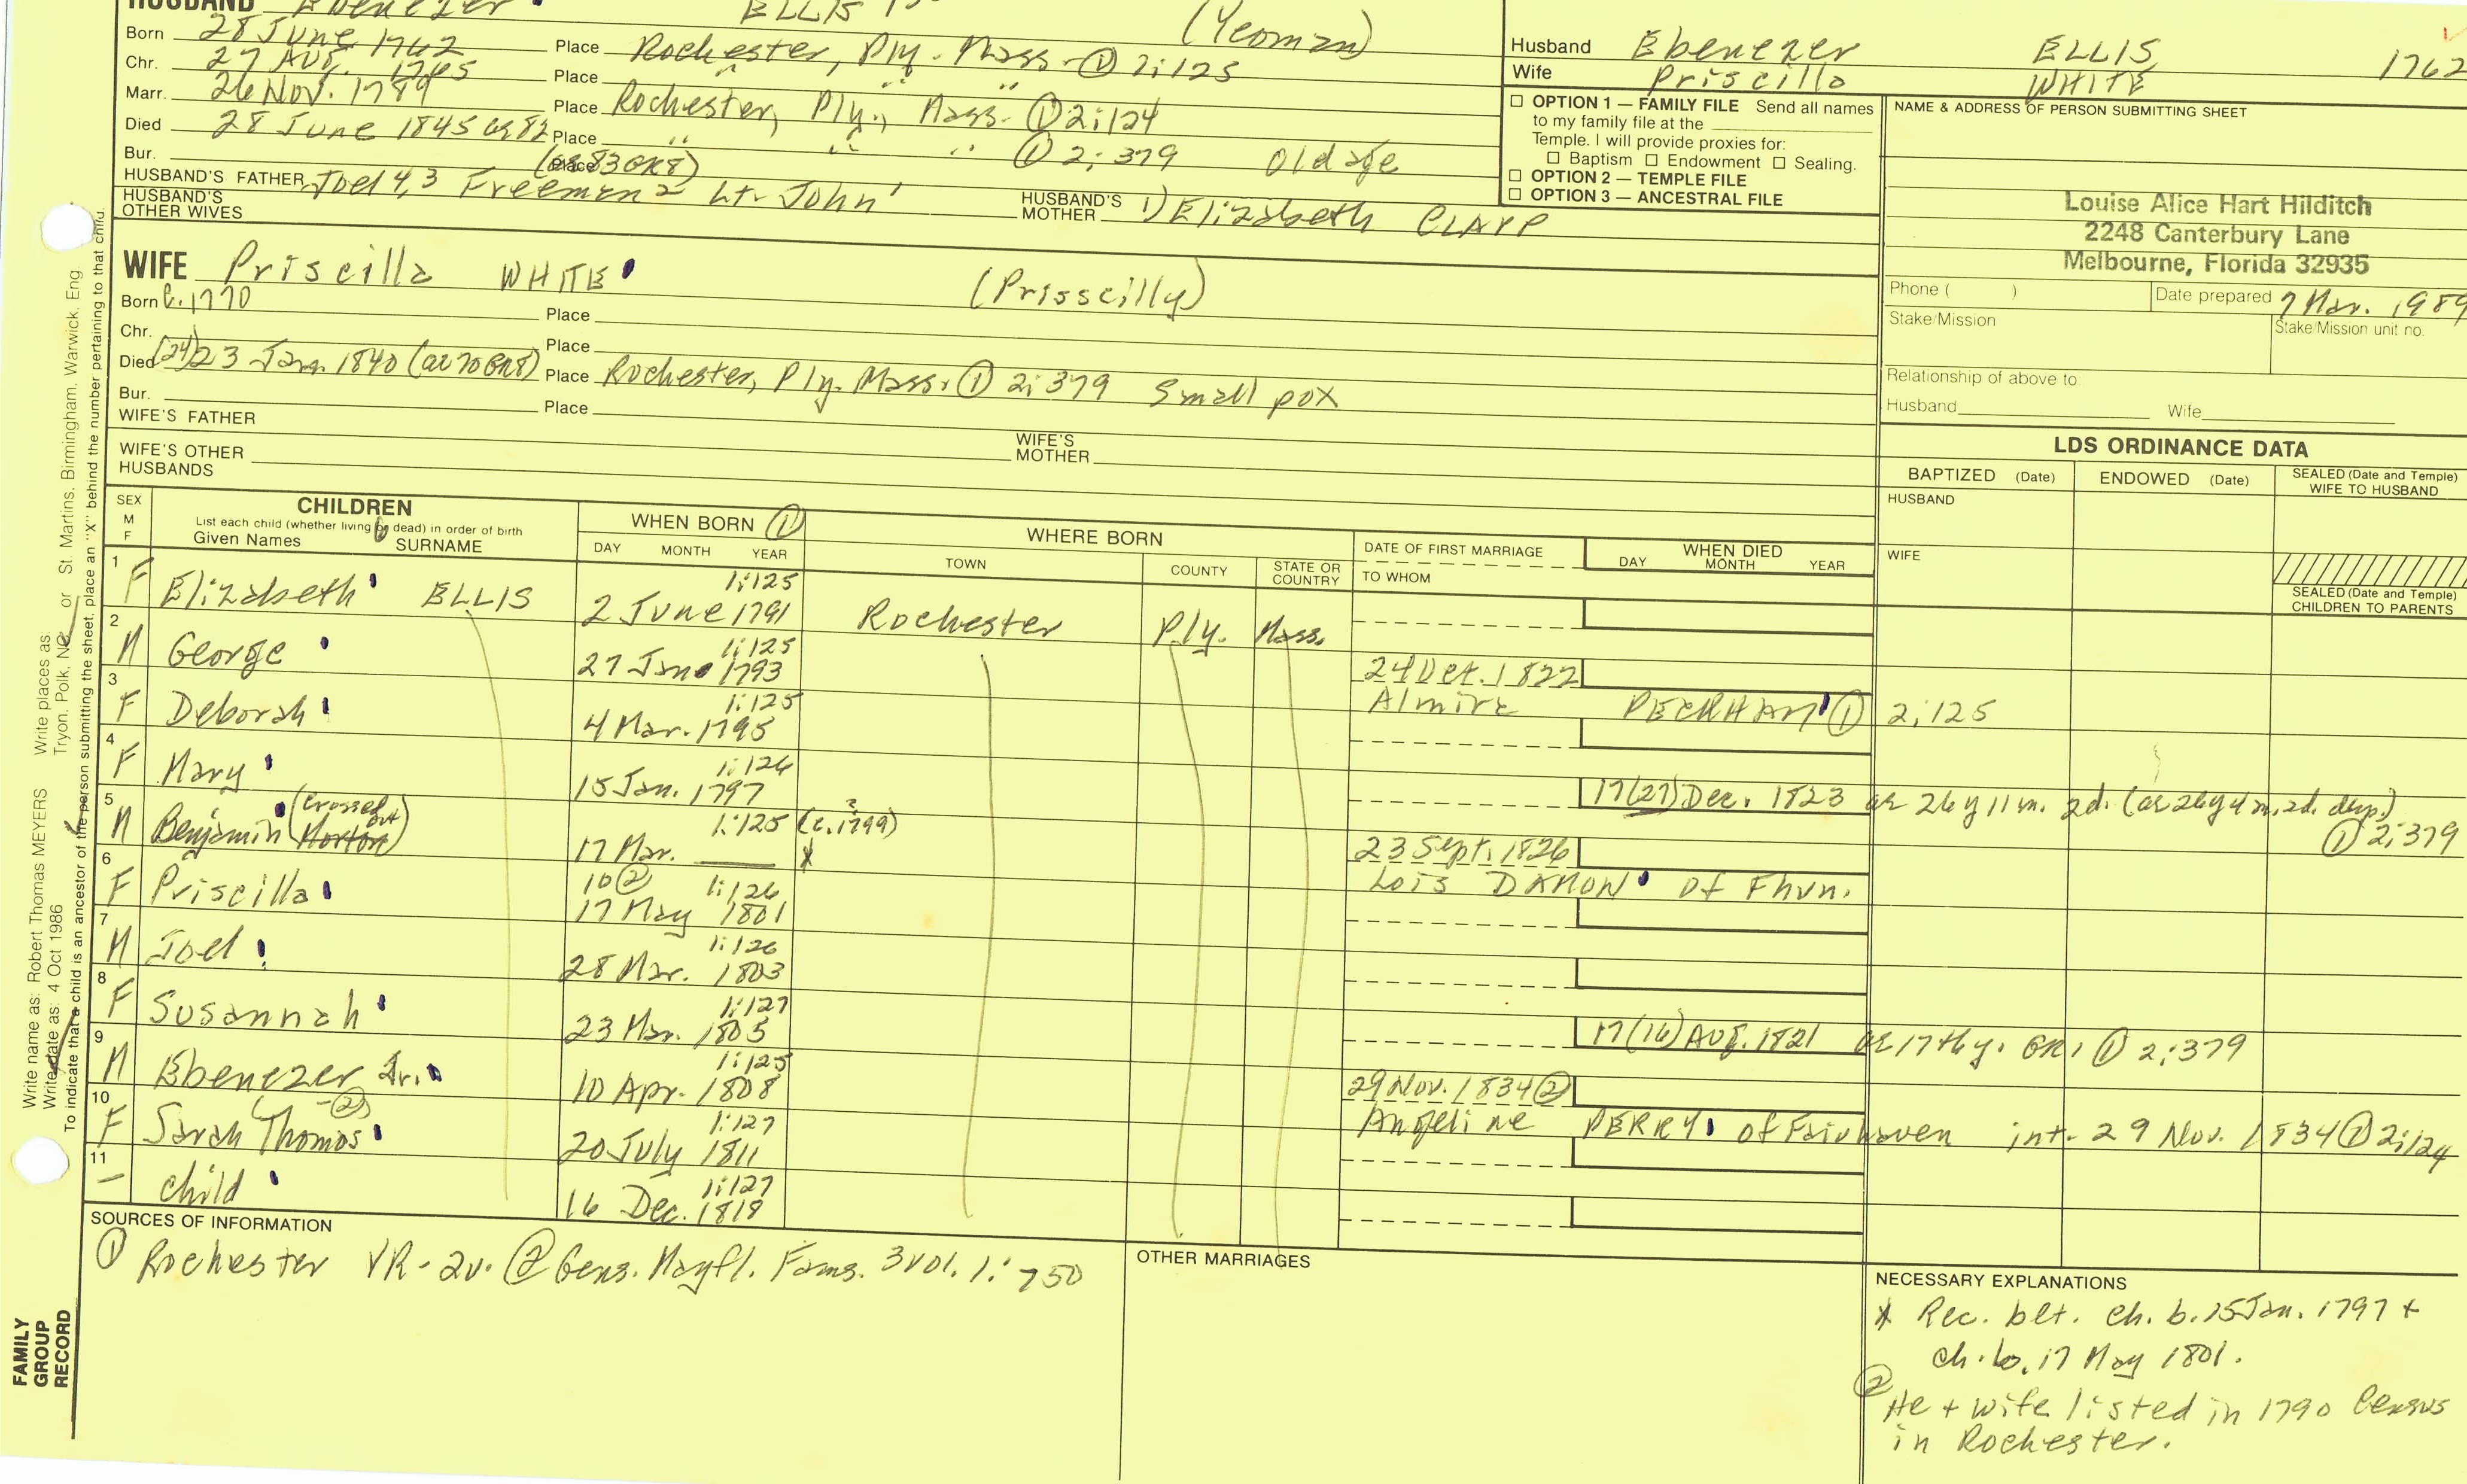 HUSBAND Ebenezer ELLIS
(Yeoman)
Born 28 June 1762 Place Rochester, Ply. Mass. ① 2:125
Chr. 27 Aug. 1765 Place " " "
Marr. 26 Nov. 1789 Place Rochester, Ply., Mass. ① 2:124
Died 28 June 1845 ae 82 Place " " " ① 2:379 Old age
Bur. (ae 83 GR8) Place
HUSBAND'S FATHER Joel 4,3 Freeman 2 Lt. John 1
HUSBAND'S MOTHER 1) Elizabeth CLAPP
HUSBAND'S OTHER WIVES
Husband Ebenezer ELLIS 1762
Wife Priscilla WHITE
☐ OPTION 1 — FAMILY FILE Send all names
to my family file at the
Temple. I will provide proxies for:
☐ Baptism ☐ Endowment ☐ Sealing.
☐ OPTION 2 — TEMPLE FILE
☐ OPTION 3 — ANCESTRAL FILE
NAME & ADDRESS OF PERSON SUBMITTING SHEET
Louise Alice Hart Hilditch
2248 Canterbury Lane
Melbourne, Florida 32935
Phone ( ) Date prepared 7 Mar. 1989
Stake/Mission Stake/Mission unit no.
Relationship of above to
Husband Wife
WIFE Priscilla WHITE (Prisscilly)
Born C. 1770 Place
Chr. Place
Died (24) 23 Jan. 1840 (ae 70 GR8) Place Rochester, Ply. Mass. ① 2:379 Small pox
Bur. Place
WIFE'S FATHER
WIFE'S MOTHER
WIFE'S OTHER HUSBANDS
LDS ORDINANCE DATA
BAPTIZED (Date) ENDOWED (Date) SEALED (Date and Temple) WIFE TO HUSBAND
HUSBAND
WIFE
SEALED (Date and Temple) CHILDREN TO PARENTS
SEX M F
CHILDREN
List each child (whether living or dead) in order of birth
Given Names SURNAME
WHEN BORN ①
DAY MONTH YEAR
WHERE BORN
TOWN COUNTY STATE OR COUNTRY
DATE OF FIRST MARRIAGE
TO WHOM
WHEN DIED
DAY MONTH YEAR
1 F Elizabeth ELLIS 1:125 2 June 1791 Rochester Ply. Mass.
2 M George 1:125 27 Jan 1793 24 Oct. 1822 Almira PECKHAM ① 2:125
3 F Deborah 1:125 4 Mar. 1795
4 F Mary 1:126 15 Jan. 1797 17(27) Dec. 1823 ae 26 y 11 m. 2d. (ae 26 y 4 m. 2d. dup.) ① 2:379
5 M Benjamin Morton (crossed out) 1:125 17 Mar. ____ (c. 1799) ? X 23 Sept. 1826 Lois DAMON of Fhvn.
6 F Priscilla 10② 1:126 17 May 1801
7 M Joel 1:126 28 Mar. 1803
8 F Susannah 1:127 23 Mar. 1805 17(16) Aug. 1821 ae 17th y. GR1 ① 2:379
9 M Ebenezer Jr. 1:125 10 Apr. 1808 29 Nov. 1834② Angeline PERRY of Fairhaven int. 29 Nov. 1834 ① 2:124
10 F Sarah Thomas ( -②) 1:127 20 July 1811
11 — child 1:127 16 Dec. 1819
SOURCES OF INFORMATION
① Rochester VR-2v. ② Gens. Mayfl. Fams. 3 vol. 1:750
OTHER MARRIAGES
NECESSARY EXPLANATIONS
X Rec. bet. ch. b. 15 Jan. 1797 +
ch. b. 17 May 1801.
② He + wife listed in 1790 Census
in Rochester.
Write name as: Robert Thomas MEYERS Write places as: Tryon, Polk, NC or St. Martins, Birmingham, Warwick, Eng
Write date as: 4 Oct 1986
To indicate that a child is an ancestor of the person submitting the sheet, place an "X" behind the number pertaining to that child.
FAMILY
GROUP
RECORD